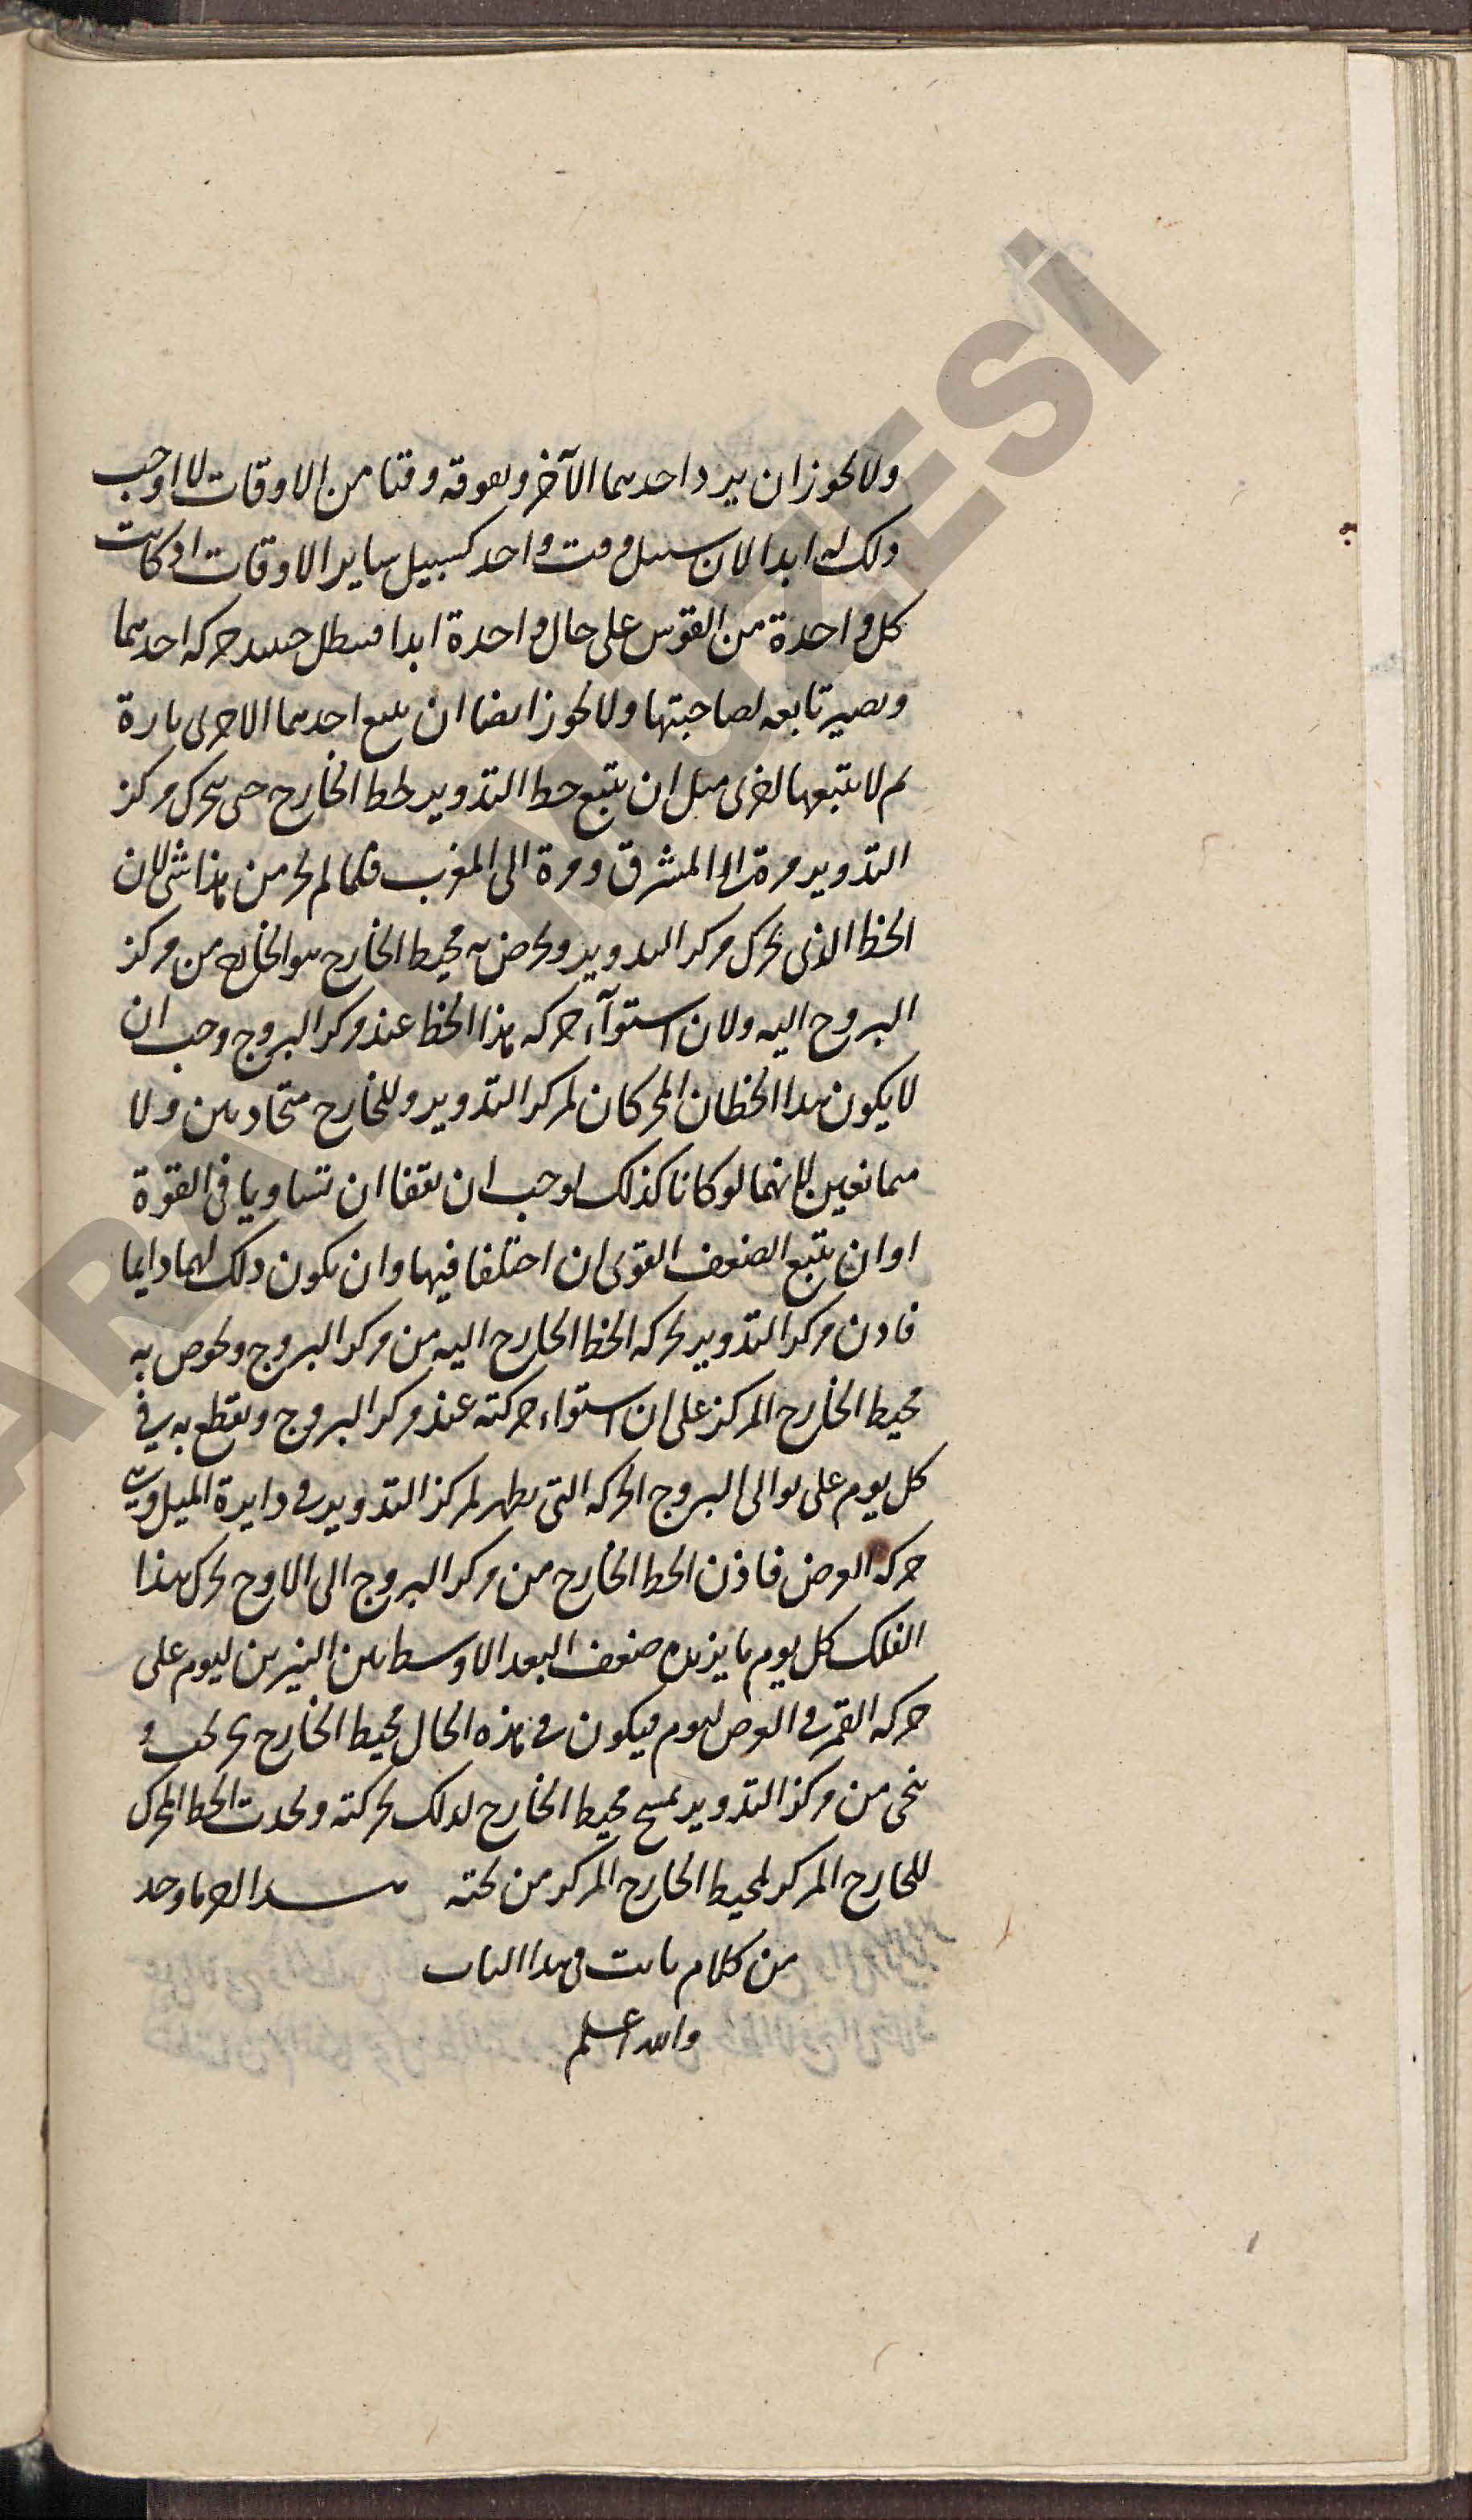 ولا يجوز ان يرد احدهما الآخر ويعوقه وقتا من الاوقات لا اوجب
ذلك له ابدا لان سبيل وقت واحد كسبيل ساير الاوقات اذ كانت
كل واحدة من القوى على حال واحدة ابدا فتبطل حينئذ حركه احدهما
وتصير تابعه لصاحبتها ولا يجوز ايضا ان يتبع احدهما الاخرى تارة
ثم لا يتبعها اخرى مثل ان يتبع خط التدوير لخط الخارج حتى يتحرك مركز
التدوير مرة الى المشرق ومرة الى المغرب فلما لم يجز من هذا شى لان
الخط الذى يحرك مركز التدوير ويخوض به محيط الخارج هو الخارج من مركز
البروج اليه ولان استوآء حركه هذا الخط عند مركز البروج وجب ان
لا يكون هذا الخطان المحركان لمركز التدوير وللخارج متحاذيين ولا
متمانعين لانهما لو كانا كذلك لوجب ان يقفا ان تساويا فى القوة
او ان يتبع الضعف القوى ان اختلفا فيها وان يكون ذلك لهما دايما
فاذن مركز التدوير يحركه الخط الخارج اليه من مركز البروج ويخوض به
محيط الخارج المركز على ان استواء حركته عند مركز البروج ويقطع به في
كل يوم على توالى البروج الحركه التى تظهر لمركز التدوير فى دايرة الميل وهي
حركه العرض فاذن الخط الخارج من مركز البروج الى الاوج يحرك هذا
الفلك كل يوم ما يزيده ضعف البعد الاوسط بين النيرين ليوم على
حركه القمر فى العرض ليوم فيكون فى هذه الحال محيط الخارج يجرى تحت و
ينحى من مركز التدوير محيط الخارج لذلك بحركته ويحدث الخط المحرك
للخارج المركز لمحيط الخارج المركز من تحته هذا اخر ما وجد
من كلام ثابت فى هذا الباب
والله اعلم
ARAMA MÜZESİ